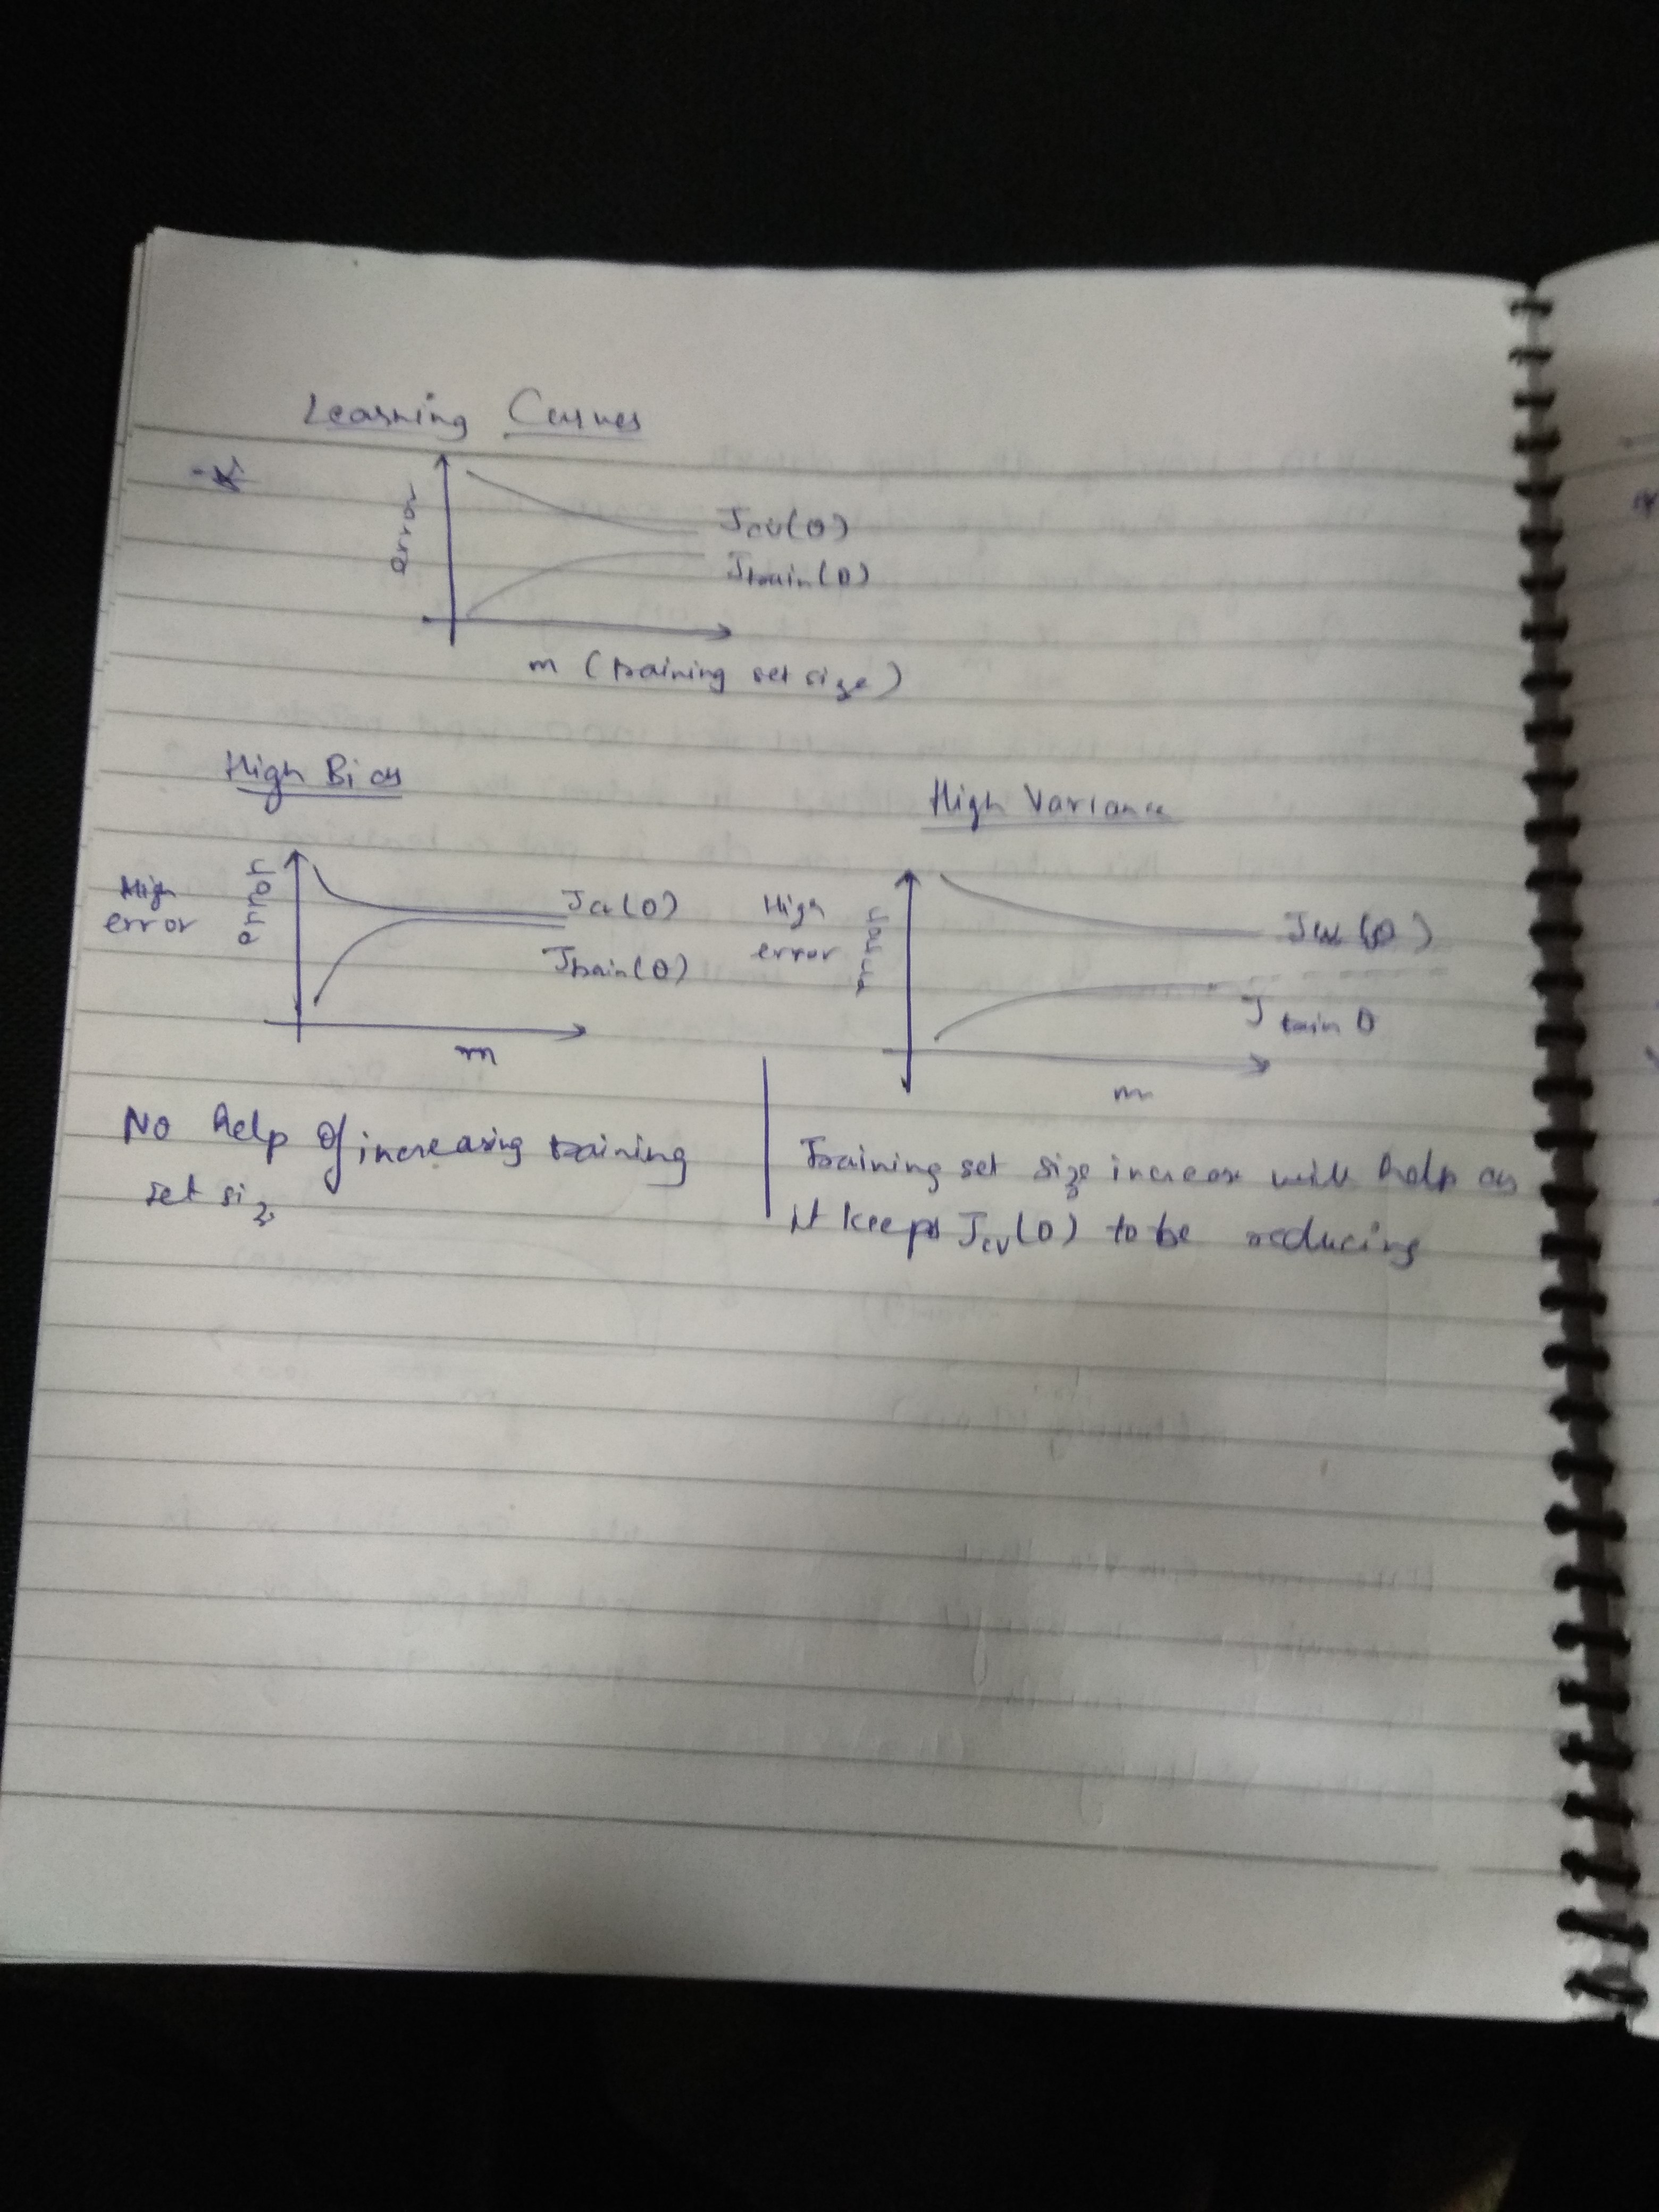 Learning Curves
error
Jcv(θ)
Jtrain(θ)
m (training set size)
High Bias
High
error
error
Jcv(θ)
Jtrain(θ)
m
No help of increasing training
set size
High Variance
High
error
error
Jcv(θ)
J train θ
m
Training set size increase will help as
it keeps Jcv(θ) to be reducing